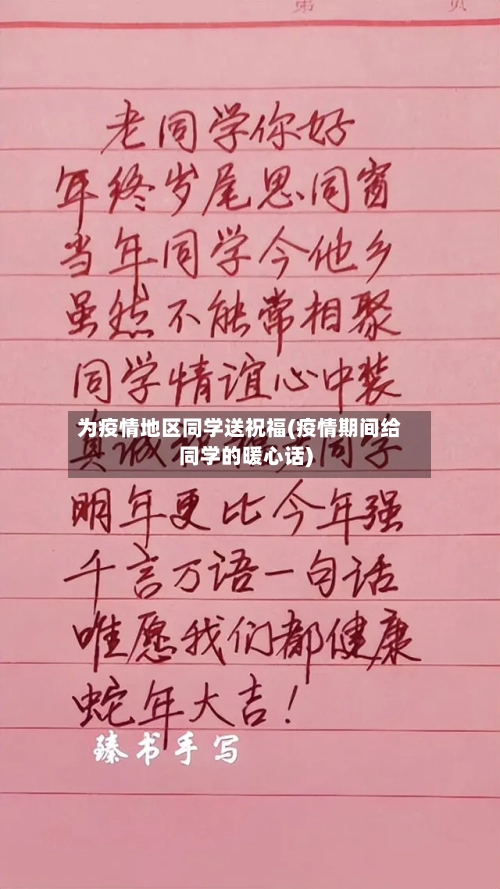 第 页
老同学你好
年终岁尾思同窗
当年同学今他乡
虽然不能常相聚
同学情谊心中装
真诚 同学
为疫情地区同学送祝福(疫情期间给
同学的暖心话)
明年更比今年强
千言万语一句话
唯愿我们都健康
蛇年大吉!
臻书手写